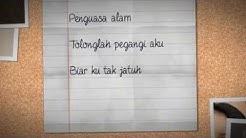 Penguasa alam
Tolonglah pegangi aku
Biar ku tak jatuh